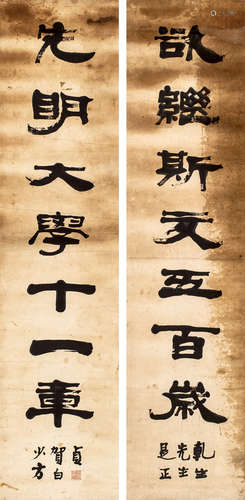 欲繼斯文五百歲
生
先生
正
先明大學十一章
貞
賀白
少方